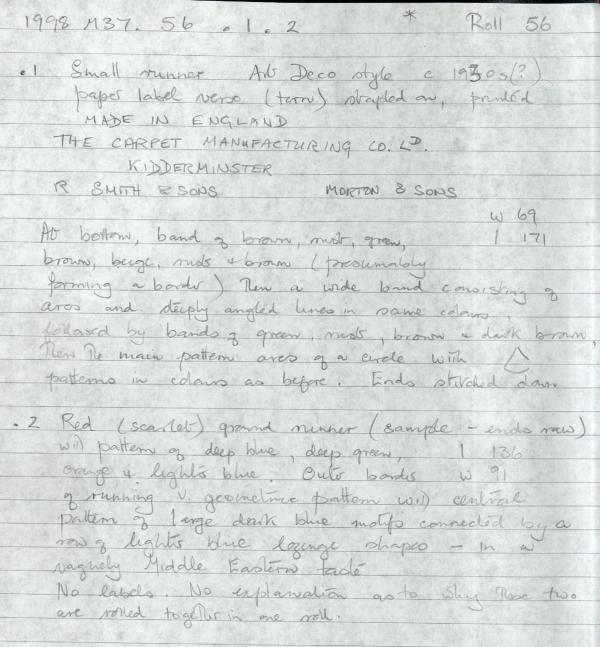 1998 M37. 56 . 1 . 2 * Roll 56
.1 Small runner Art Deco style c 1930s(?)
paper label verso (torn) strapled on, printed
MADE IN ENGLAND
THE CARPET MANUFACTURING CO. LD.
KIDDERMINSTER
R SMITH & SONS MORTON & SONS
w 69
At bottom, band of brown, rust, green, l 171
brown, beige, rust + brown (presumably
forming a border) Then a wide band consisting of
arcs and deeply angled lines in same colours,
followed by bands of green, rust, brown + dark brown,
Then the main pattern arcs of a circle with
patterns in colours as before. Ends stitched down
.2 Red (scarlet) ground runner (sample - ends raw)
with pattern of deep blue, deep green, l 136
orange + lighter blue. Outer borders w 91
of running v. geometric pattern with central
pattern of large dark blue motifs connected by a
row of lighter blue lozenge shapes - in a
vaguely Middle Eastern taste
No labels. No explanation as to why these two
are rolled together in one roll.